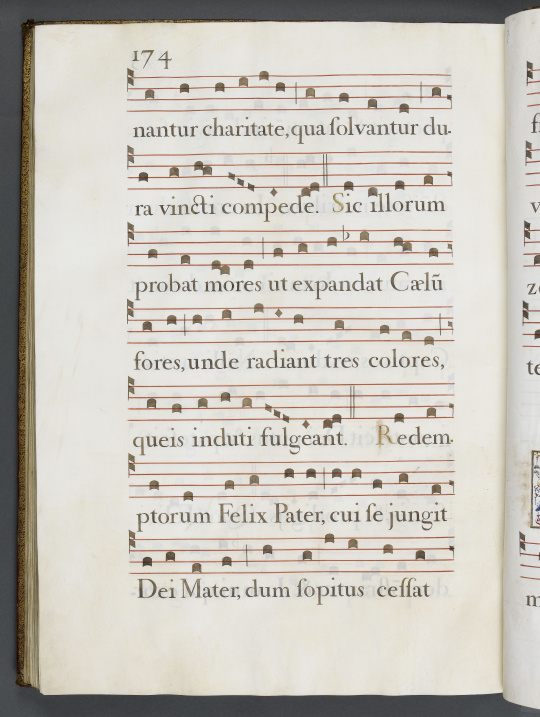 174
nantur charitate, qua ſolvantur du-
ra vincti compede. Sic illorum
probat mores ut expandat Cælū
fores, unde radiant tres colores,
queis induti fulgeant. Redem-
ptorum Felix Pater, cui ſe jungit
Dei Mater, dum ſopitus ceſſat